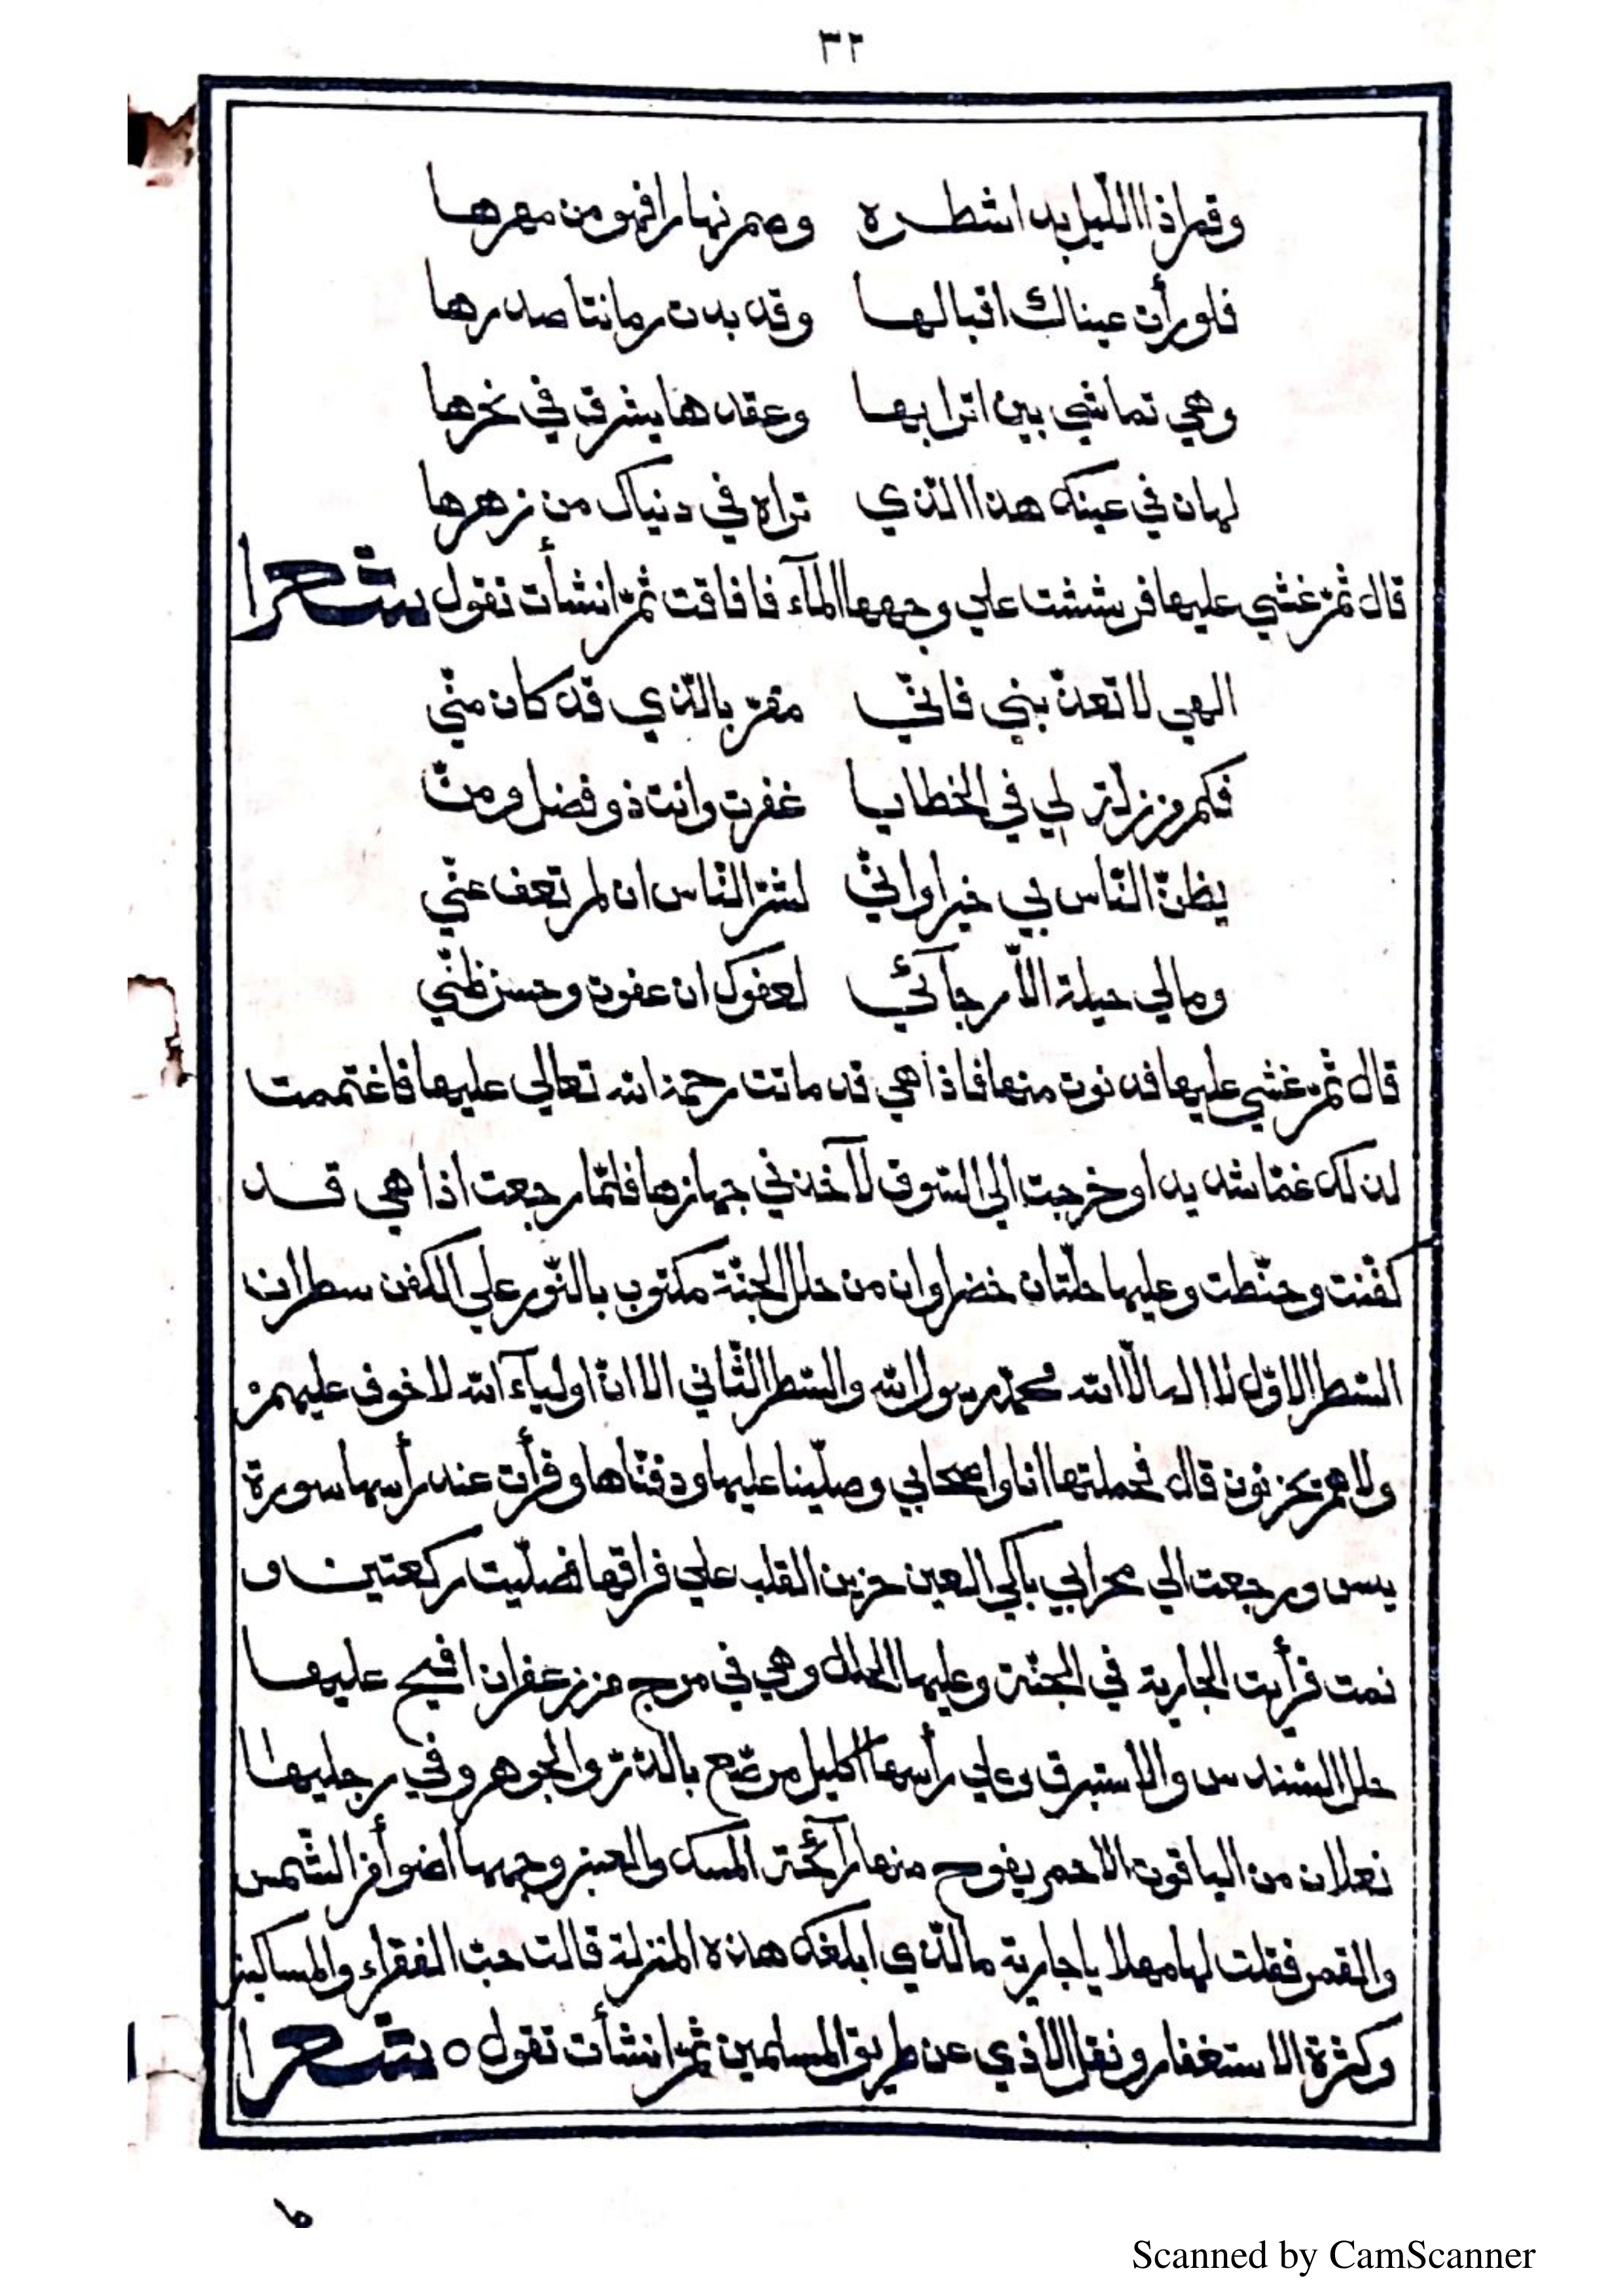 ٣٢
وقم اذا الليل بدا شطره وصم نهارا فهو من مهرها
فلو رأت عيناك اقبالها وقد بدت رمانتا صدرها
وهي تماشي بين اترابها وعقدها يشرق في نحرها
لهان في عينك هذا الّذي تراه في دنياك من زهرها
قال ثمّ غشي عليها فرششت علي وجهها المآء فافاقت ثمّ انشأت تقول شعرا
الهي لا تعذّبني فانّي مقرّ بالّذي قد كان منّي
فكم من زلّة لي في الخطايا غفرت وانت ذو فضل ومنّ
يظنّ النّاس بي خيرا وانّي لشرّ النّاس ان لم تعف عنّي
ومالي حيلة الّا رجآئي لعفوك ان عفوت وحسن ظنّي
قال ثمّ غشي عليها فدنوت منها فاذا هي قد ماتت رحمة الله تعالي عليها فاغتممت
لذلك غمّا شديدا وخرجت الي السّوق لآخذ في جهازها فلمّا رجعت اذا هي قد
كفّنت وحنّطت وعليها حلّتان خضراوان من حلل الجنّة مكتوب بالنّور علي الكفن سطران
السّطر الاوّل لا اله الّا الله محمّد رسول الله والسّطر الثّاني الا انّ اوليآء الله لا خوف عليهم
ولا هم يحزنون قال فحملتها انا واصحابي وصلّينا عليها ودفنّاها وقرأت عند رأسها سورة
يس ورجعت الي محرابي باكي العين حزين القلب علي فراقها فصلّيت ركعتين و
نمت فرأيت الجارية في الجنّة وعليها الحلل وهي في مرج من زعفران افيح عليها
حلل السّندس والاستبرق وعلي رأسها اكليل مرصّع بالدّرّ والجوهر وفي رجليها
نعلان من الياقوت الاحمر يفوح منها رآئحة المسك والعنبر ووجهها اضوأ من الشّمس
والقمر فقلت لها مهلا يا جارية ما الّذي ابلغك هذه المنزلة قالت حبّ الفقراء والمساكين
وكثرة الاستغفار ونقل الاذي عن طريق المسلمين ثمّ انشأت تقول ٥ شعرا
Scanned by CamScanner